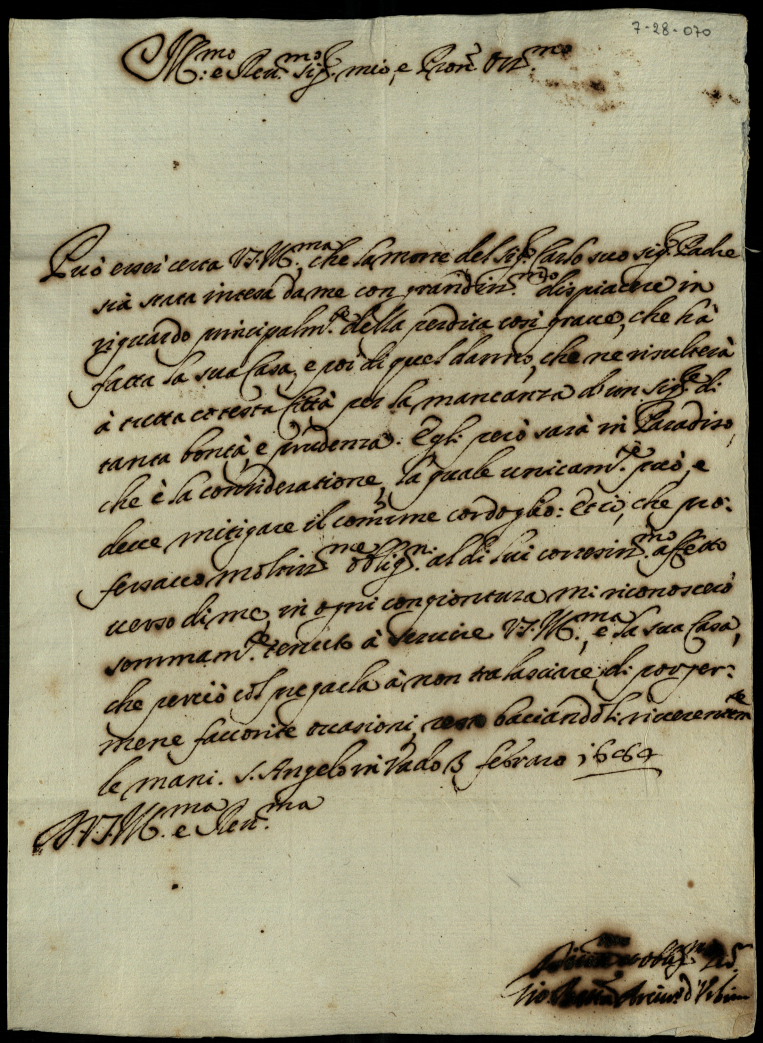 7-28-070
Ill.mo e Reu.mo Sig.r mio, e Pron. Oss.mo
Può esser certa V.S. Ill.ma, che la morte del Sig.r Carlo suo Sig.r Padre
sia stata intesa da me con grandiss.mo dispiacere in
riguardo principalm.te della perdita così graue, che hà
fatta la sua Casa, e poi di quel danno, che ne risulterà
à tutta cotesta Città per la mancanza d'un Sig.re di
tanta bontà, e prudenza. Egli però sarà in Paradiso,
che è la consideratione, la quale unicam.te può, e
deue mitigare il comune cordoglio: Et io, che pro:
fessauo moltiss.me oblig.ni al di lui cortesiss.mo affetto
uerso di me, in ogni congiontura mi riconoscerò
sommam.te tenuto à seruire V.S. Ill.ma, e la sua Casa,
che perciò col pregarla à non tralasciare di porger:
mene fauorite occasioni, resto baciandoli riuerentem.te
le mani. S. Angelo in Vado 3 febraro 1664
D. V.S. Ill.ma e Reu.ma
et oblig.mo
d'Urbino